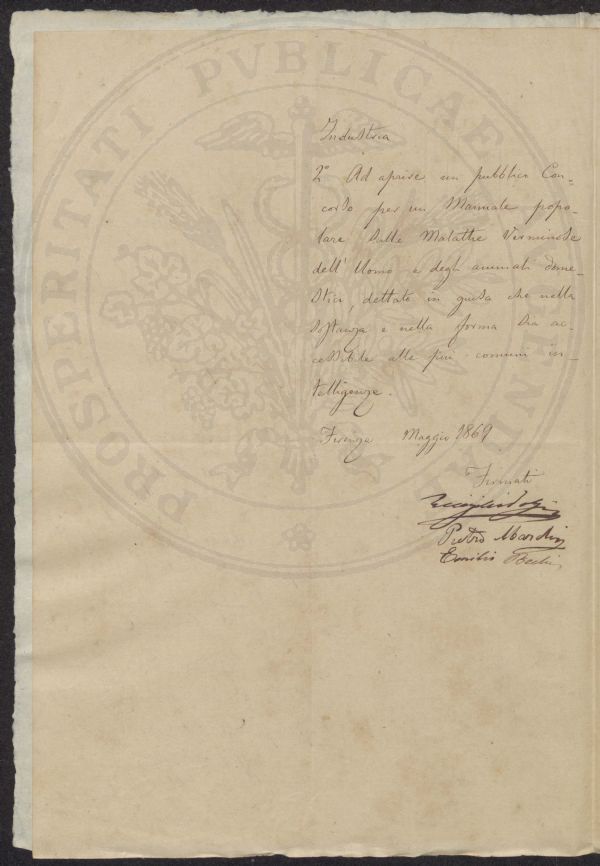 PROSPERITATI PVBLICAE
Industria
2º Ad aprire un pubblico Con=
corso per un Manuale popo=
lare sulle Malattie Verminose
dell' Uomo e degli animali dome=
stici, dettato in guisa che nella
sostanza e nella forma sia ac=
cessibile alle più comuni in=
telligenze.
Firenze Maggio 1869
Firmati
Pietro
Emilio